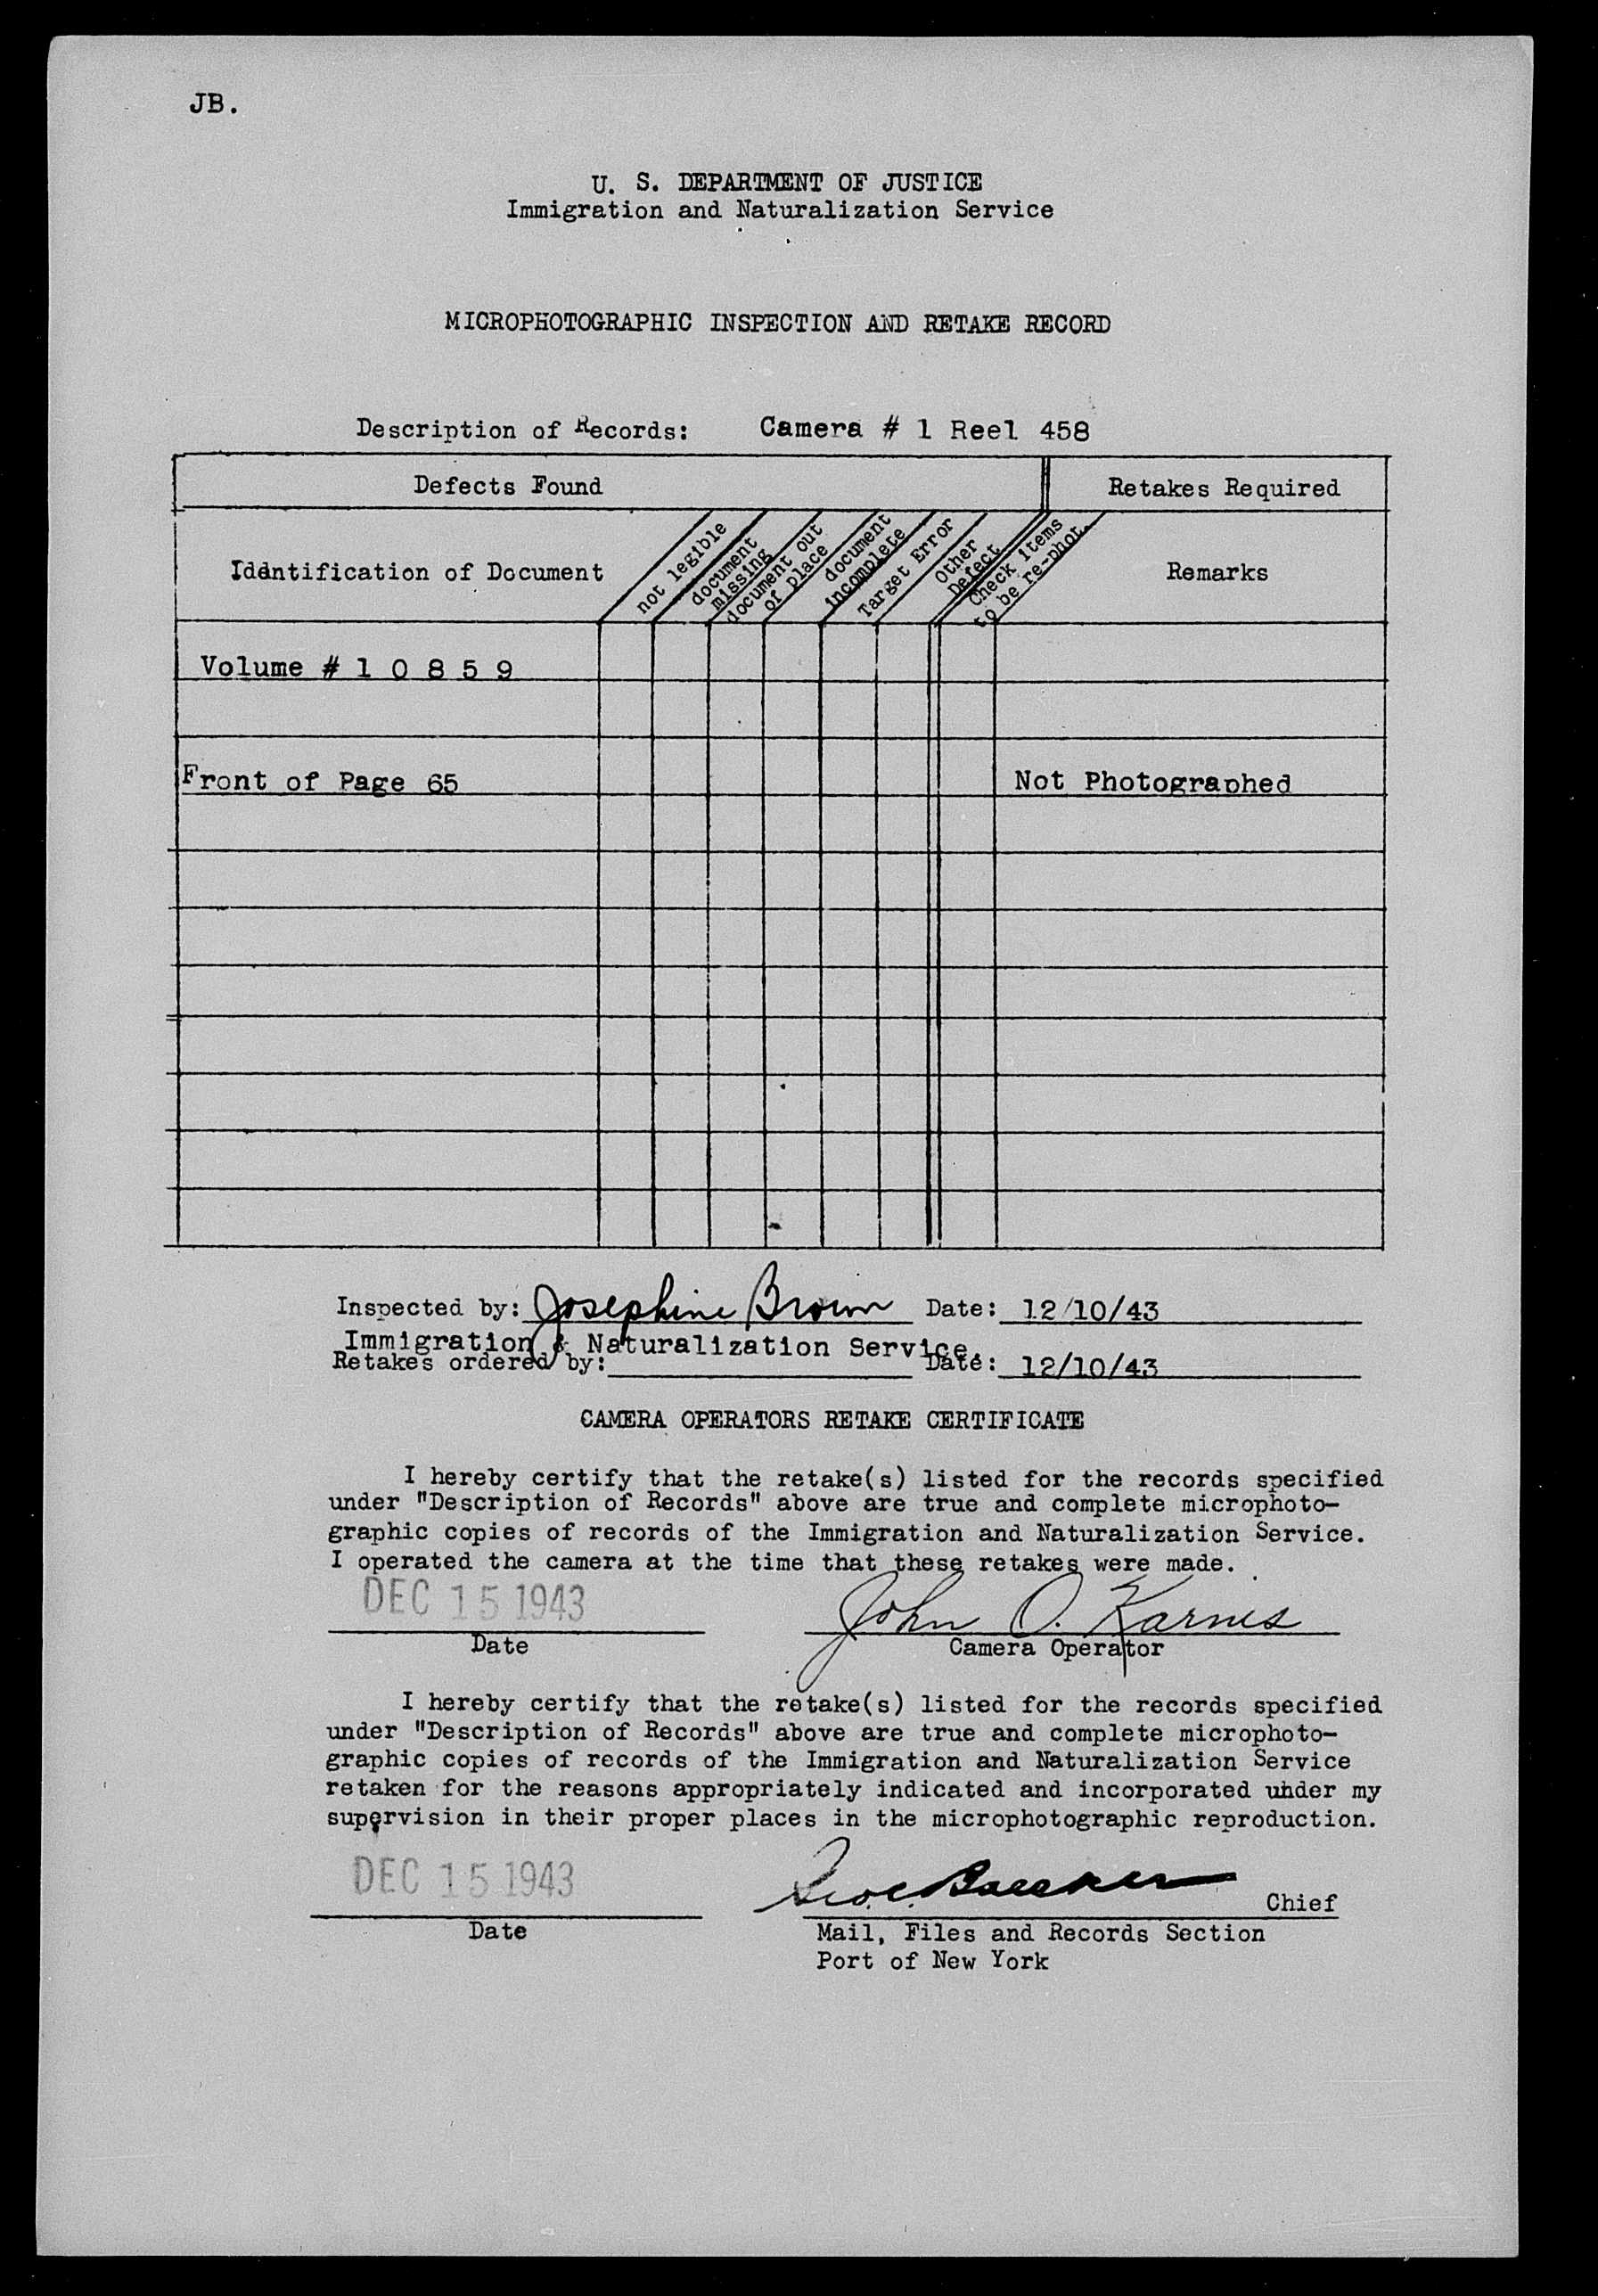 JB.
U. S. DEPARTMENT OF JUSTICE
Immigration and Naturalization Service
MICROPHOTOGRAPHIC INSPECTION AND RETAKE RECORD
Description of Records: Camera # 1 Reel 458
Defects Found
Retakes Required
Iddntification of Document
not legible
document
missing
document out
of place
document
incomplete
Target Error
Other
Defect
Check items
to be re-phot.
Remarks
Volume # 1 0 8 5 9
Front of Page 65 Not Photographed
Inspected by: Josephine Brown Date: 12/10/43
Immigration & Naturalization Service.
Retakes ordered by: Date: 12/10/43
CAMERA OPERATORS RETAKE CERTIFICATE
I hereby certify that the retake(s) listed for the records specified
under "Description of Records" above are true and complete microphoto-
graphic copies of records of the Immigration and Naturalization Service.
I operated the camera at the time that these retakes were made.
DEC 15 1943 John O. Karnes
Date Camera Operator
I hereby certify that the retake(s) listed for the records specified
under "Description of Records" above are true and complete microphoto-
graphic copies of records of the Immigration and Naturalization Service
retaken for the reasons appropriately indicated and incorporated under my
supervision in their proper places in the microphotographic reproduction.
DEC 15 1943
Chief
Date Mail, Files and Records Section
Port of New York